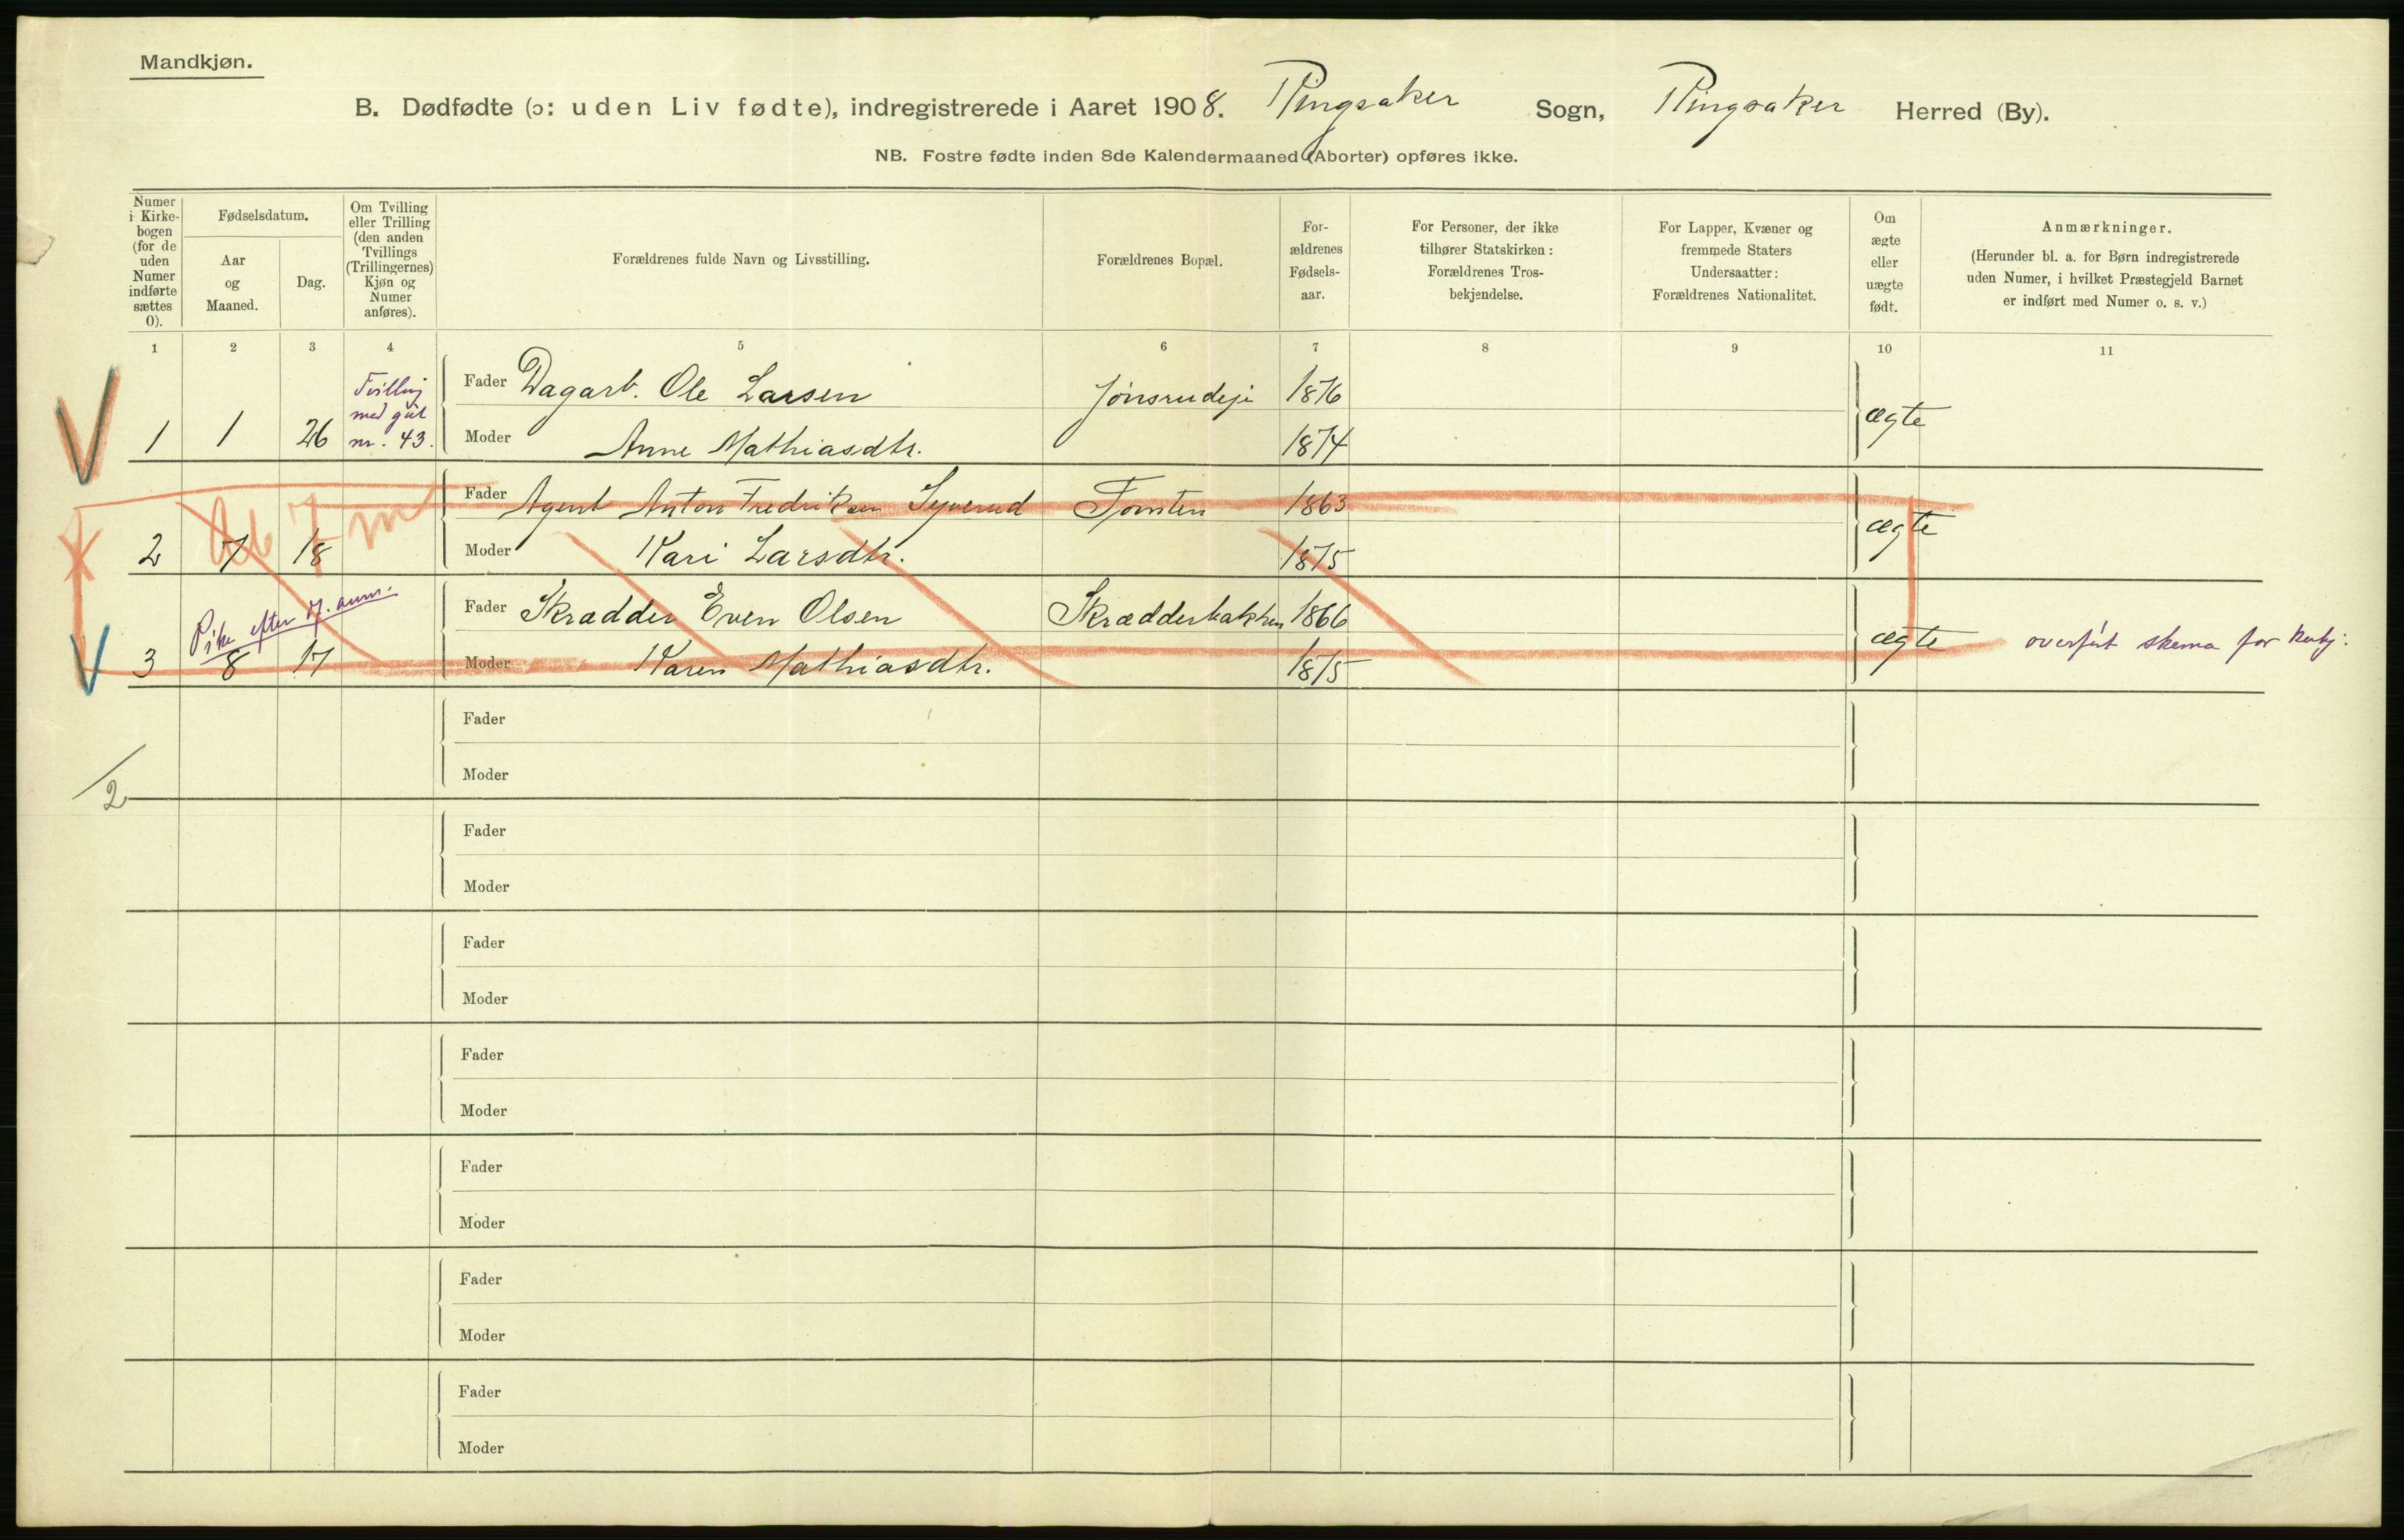 Mandkjøn.
B. Dødfødte (ɔ: uden Liv fødte), indregistrerede i Aaret 1908. Ringsaker Sogn, Ringsaker Herred (By).
NB. Fostre fødte inden 8de Kalendermaaned (Aborter) opføres ikke.
Numer
i Kirke-
bogen
(for de
uden
Numer
indførte
sættes
0).
Fødselsdatum.
Aar
og
Maaned.
Dag.
Om Tvilling
eller Trilling
(den anden
Tvillings
(Trillingernes)
Kjøn og
Numer
anføres).
Forældrenes fulde Navn og Livsstilling.
Forældrenes Bopæl.
For-
ældrenes
Fødsels-
aar.
For Personer, der ikke
tilhører Statskirken:
Forældrenes Tros-
bekjendelse.
For Lapper, Kvæner og
fremmede Staters
Undersaatter:
Forældrenes Nationalitet.
Om
ægte
eller
uægte
født.
Anmærkninger.
(Herunder bl. a. for Børn indregistrerede
uden Numer, i hvilket Præstegjeld Barnet
er indført med Numer o. s. v.)
1 2 3 4 5 6 7 8 9 10 11
Tvilling
med gut
nr. 43.
Fader Dagarb. Ole Larsen Jønsrudeje 1876
1 1 26 Moder Anne Mathiasdtr. 1874 ægte
Fader Agent Anton Fredriksen Syverud Tomten 1863
2 7 18 Moder Kari Larsdtr. 1875 ægte
7 m
Pike efter M. anm.
Fader Skrædder Even Olsen Skrædderbakken 1866
3 8 17 Moder Karen Mathiasdtr. 1875 ægte overført skema for kvkj:
Fader
Moder
2
Fader
Moder
Fader
Moder
Fader
Moder
Fader
Moder
Fader
Moder
Fader
Moder